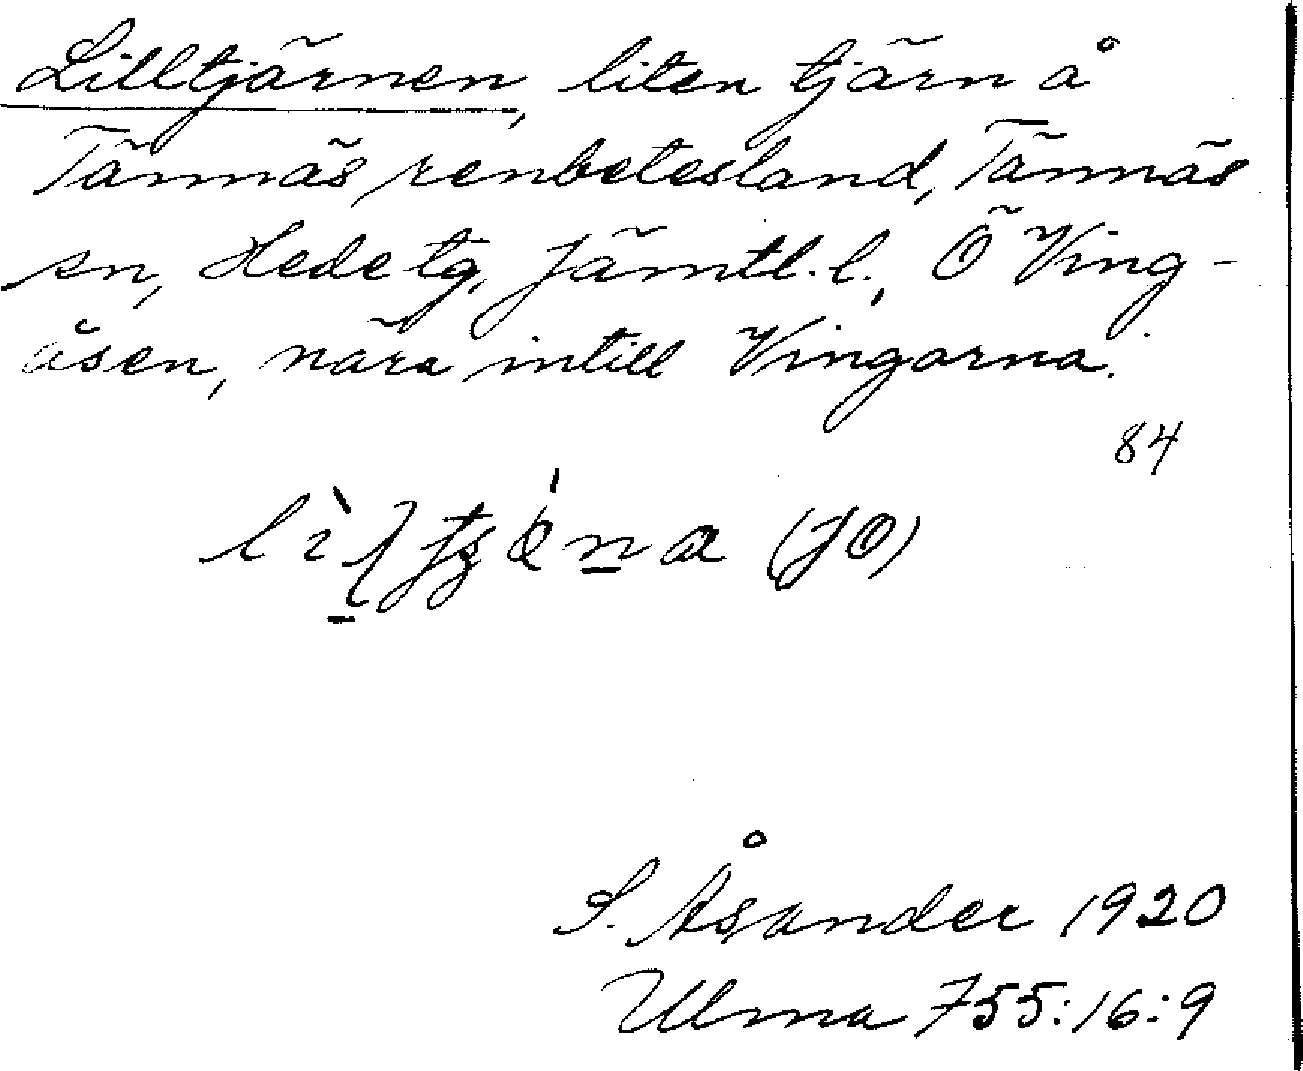 Lilltjärnen, liten tjärn å
Tännäs renbetesland, Tännäs
sn, Hede tg, Jämtl. l., Ö Ving-
åsen, nära intill Vingarna.
84
(JO)
S. Åsander 1920
Ulma 755:16:9